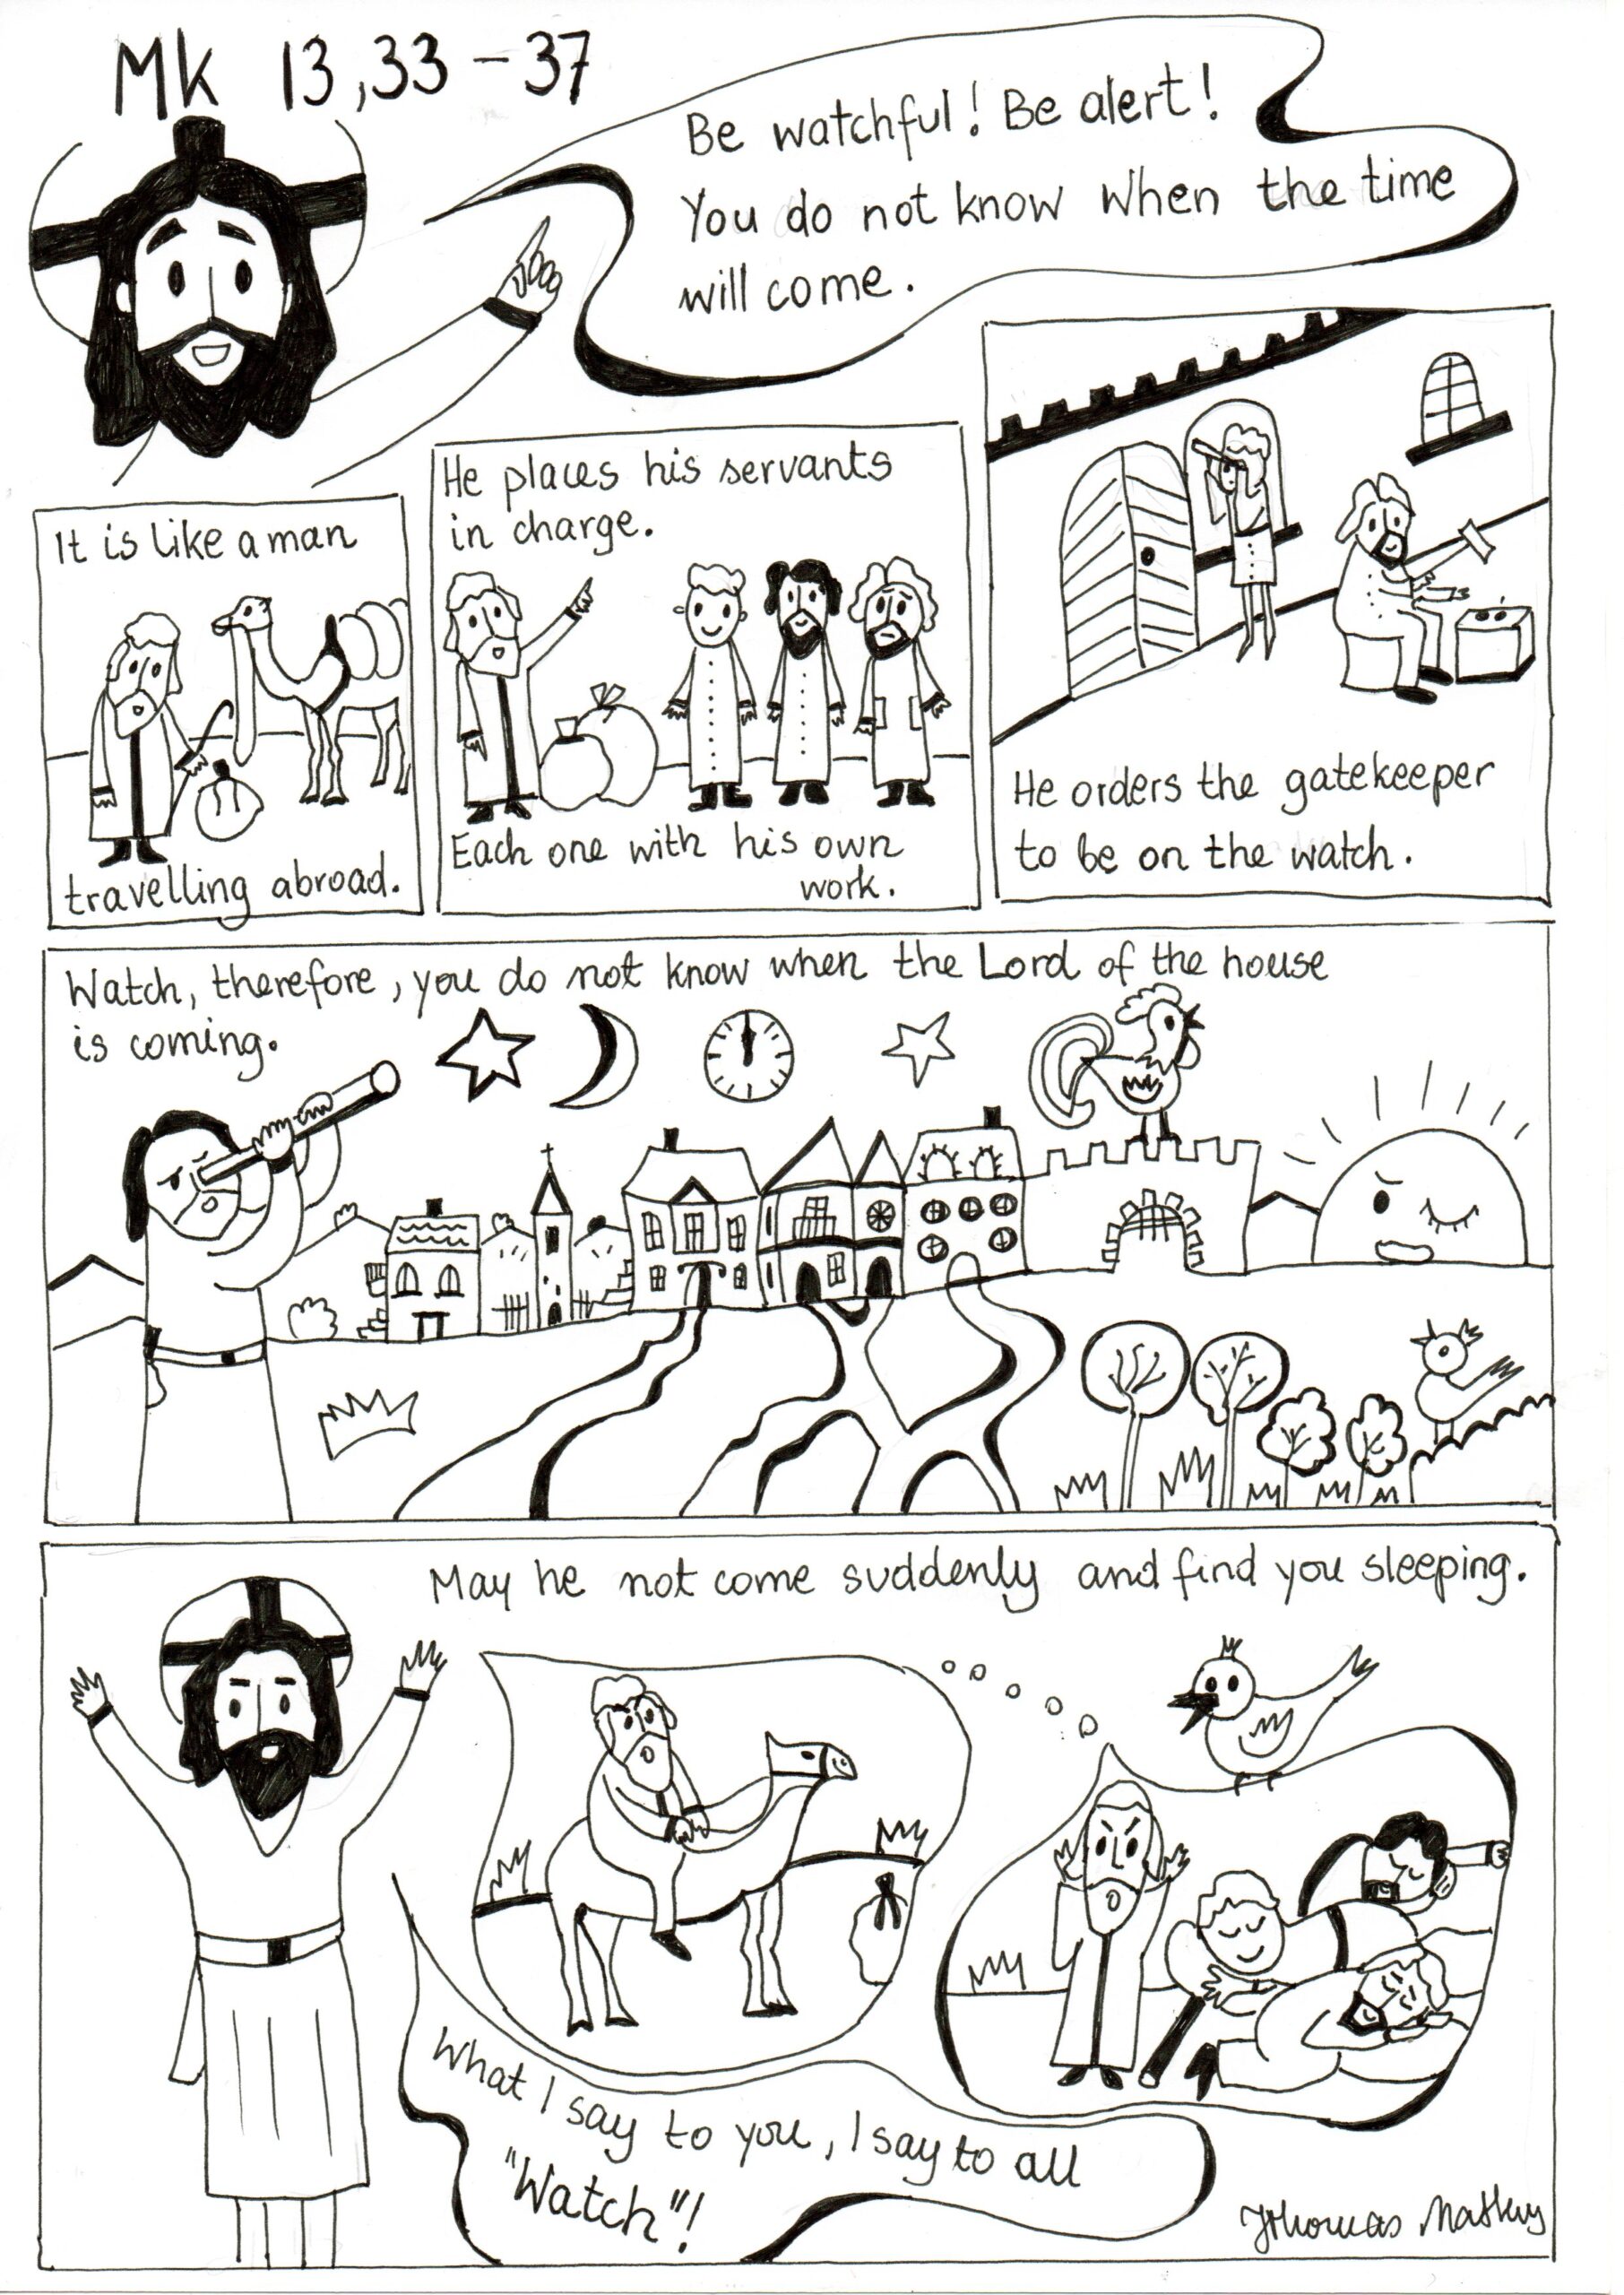 Mk 13,33-37
Be watchful! Be alert!
You do not know when the time
will come.
It is like a man
travelling abroad.
He places his servants
in charge.
Each one with his own
work.
He orders the gatekeeper
to be on the watch.
Watch, therefore, you do not know when the Lord of the house
is coming.
May he not come suddenly and find you sleeping.
What I say to you, I say to all
"Watch"!